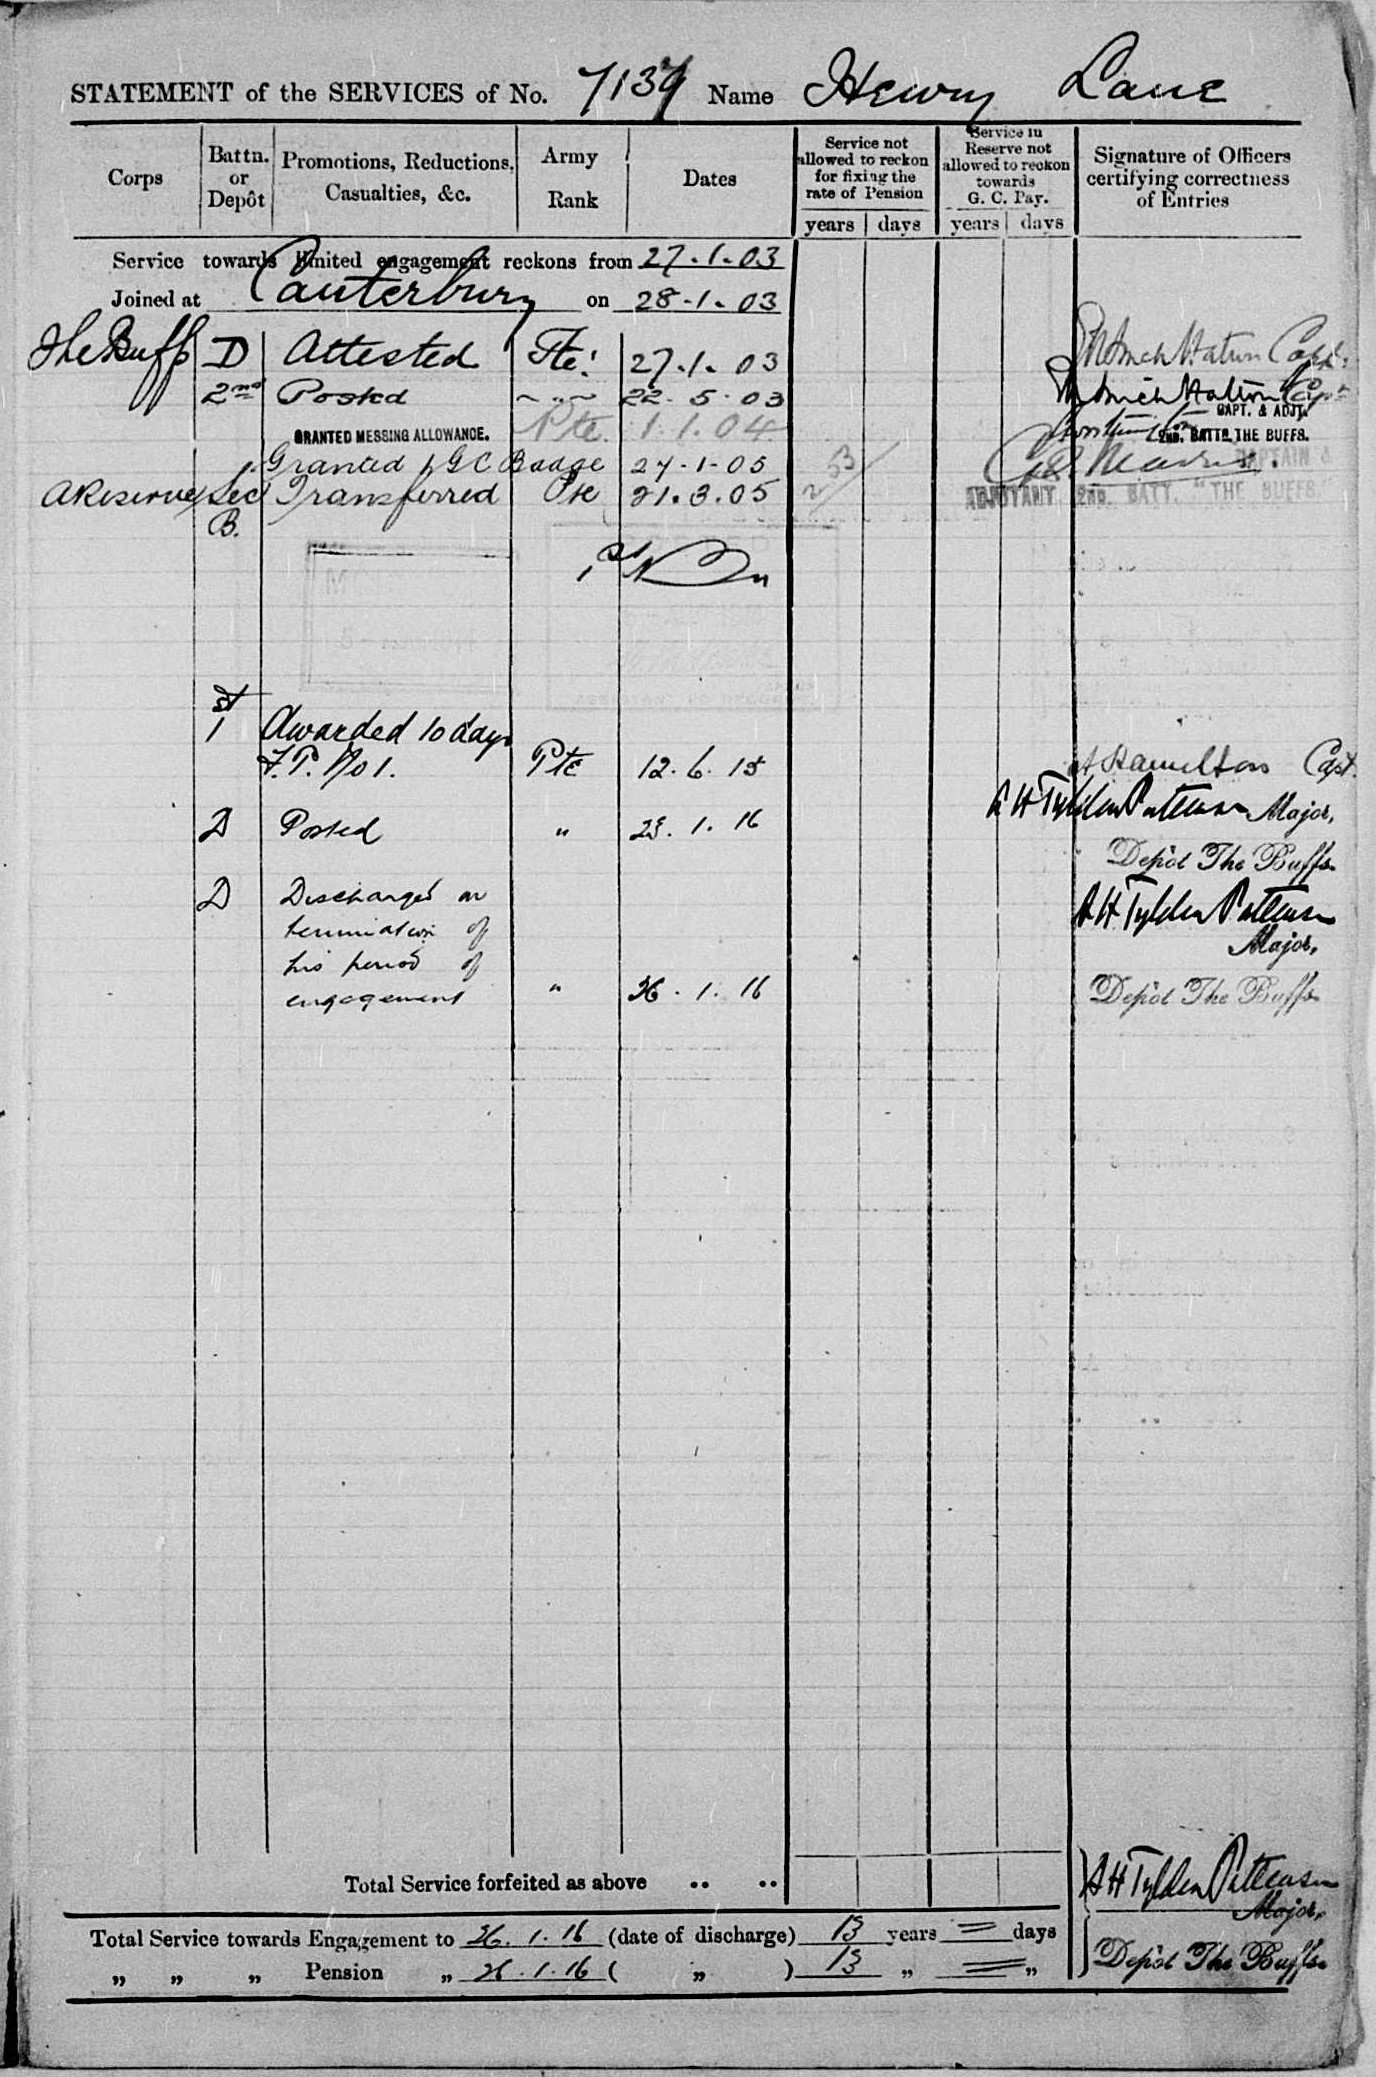 STATEMENT of the SERVICES of No. 7139 Name Henry Lane
Corps
Battn. or Depôt
Promotions, Reductions, Casualties, &c.
Army Rank
Dates
Service not allowed to reckon for fixing the rate of Pension
years days
Service in Reserve not allowed to reckon towards G. C. Pay.
years days
Signature of Officers certifying correctness of Entries
Service towards limited engagement reckons from 27.1.03
Joined at Canterbury on 28.1.03
The Buffs D Attested Pte: 27.1.03 Capt:
2nd Posted " 22.5.03 Capt
CAPT. & ADJT.
GRANTED MESSING ALLOWANCE. Pte 1.1.04 2ND. BATTN THE BUFFS.
Granted 1 GC Badge 27.1.05 CAPTAIN &
A Reserve Sec Transferred Pte 21.3.05 2 53 ADJUTANT, 2ND. BATT. "THE BUFFS."
B.
1st
1st Awarded 10 days
F.P. No 1. Pte 12.6.15 Hamilton Capt.
D Posted " 23.1.16 A H Tylden Pattenson Major,
Depôt The Buffs.
D Discharged on A H Tylden Pattenson
termination of Major,
his period of
engagement " 26.1.16 Depôt The Buffs.
Total Service forfeited as above .. .. A H Tylden Pattenson
Major,
Total Service towards Engagement to 26.1.16 (date of discharge) 13 years = days
" " " Pension " 26.1.16 ( " ) 13 " = " Depôt The Buffs.